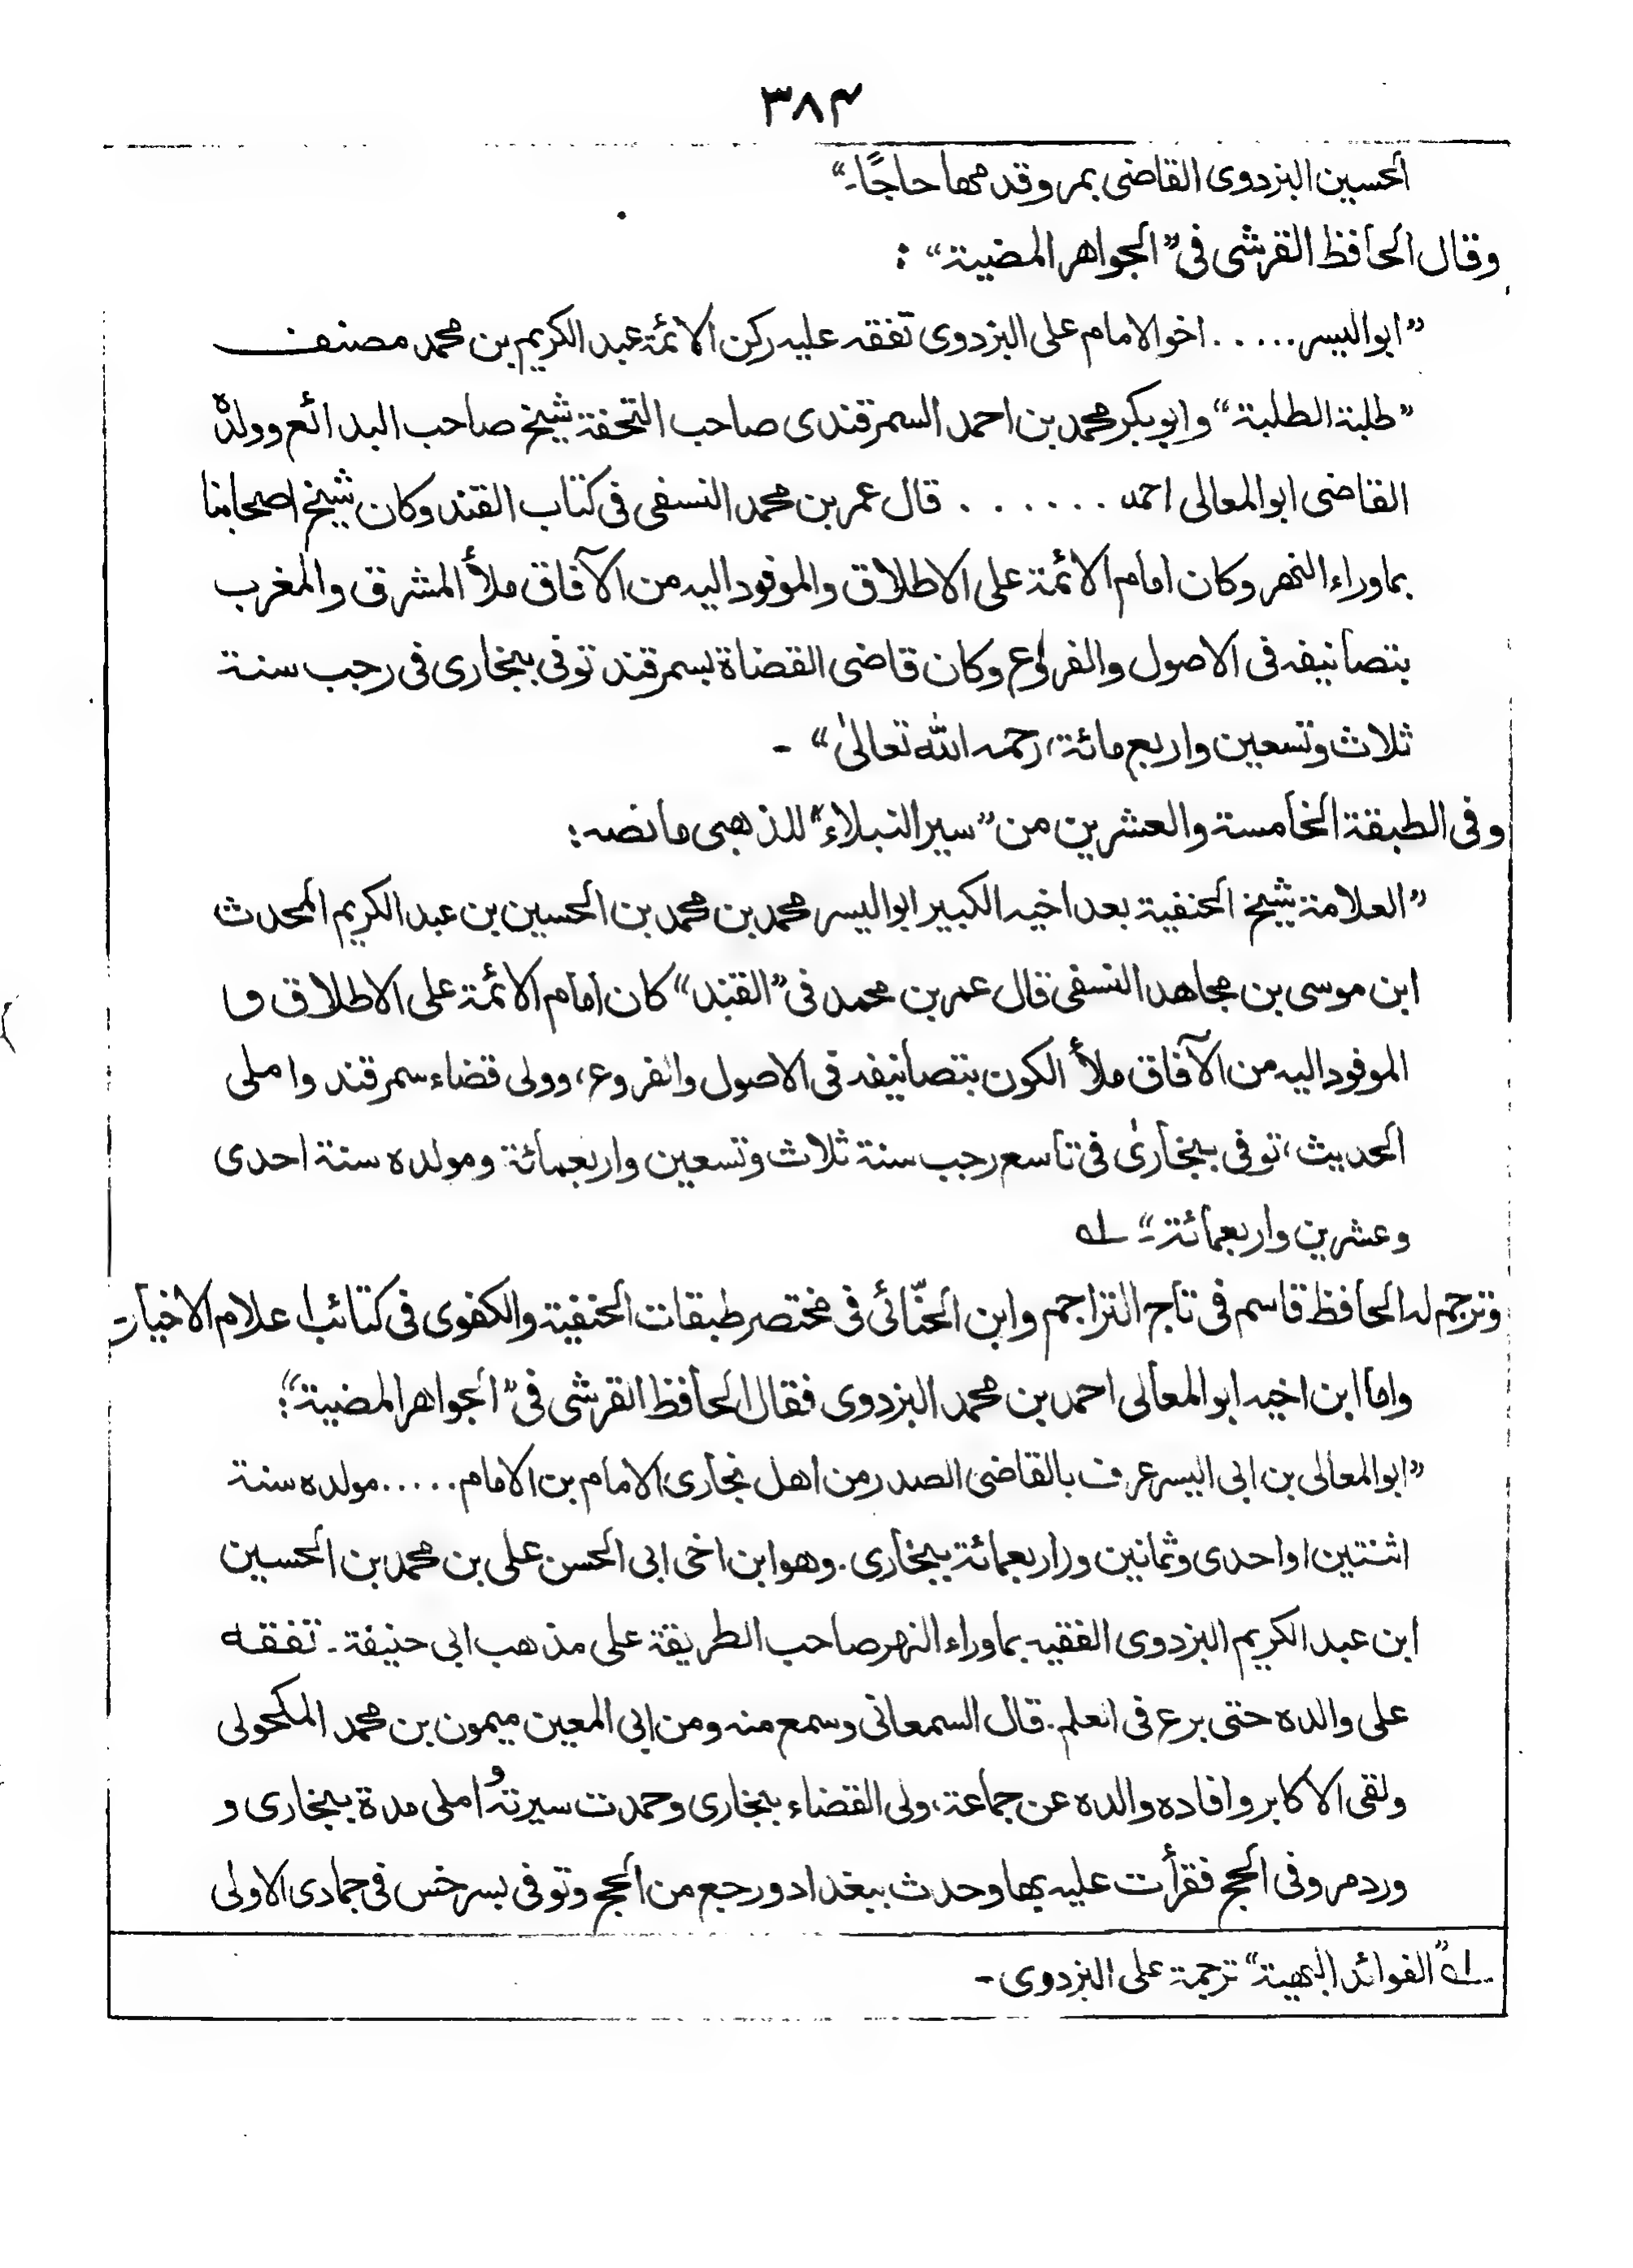 ٣٨٤
الحسين البزدوى القاضى بمرو قدمها حاجًا۔“
وقال الحافظ القرشى فى ”الجواهر المضية“ :
”ابو اليسر..... اخو الامام على البزدوى تفقه عليه ركن الائمة عبد الكريم بن محمد مصنف
”طلبة الطلبة“ وابو بكر محمد بن احمد السمرقندى صاحب التحفة شيخ صاحب البدائع وولدُه
القاضى ابو المعالى احمد ...... قال عمر بن محمد النسفى فى كتاب القند وكان شيخ اصحابنا
بماوراء النهر وكان امام الائمة على الاطلاق والموفود اليه من الآفاق ملأ المشرق والمغرب
بتصانيفه فى الاصول والفروع وكان قاضى القضاة بسمرقند توفى ببخارى فى رجب سنة
ثلاث وتسعين واربع مائة، رحمه الله تعالىٰ“ ۔
وفى الطبقة الخامسة والعشرين من ”سير النبلاء“ للذهبى مانصه:
”العلامة شيخ الحنفية بعد اخيه الكبير ابو اليسر محمد بن محمد بن الحسين بن عبد الكريم المحدث
ابن موسى بن مجاهد النسفى قال عمر بن محمد فى ”القند“ كان امام الائمة على الاطلاق و
الموفود اليه من الآفاق ملأ الكون بتصانيفه فى الاصول والفروع، وولى قضاء سمرقند واملى
الحديث، توفى ببخارىٰ فى تاسع رجب سنة ثلاث وتسعين واربعمائة ومولده سنة احدى
وعشرين واربعمائة۔“ لــه
وترجم له الحافظ قاسم فى تاج التراجم وابن الحنّائى فى مختصر طبقات الحنفية والكفوى فى كتائب اعلام الاخيار
واما ابن اخيه ابو المعالى احمد بن محمد البزدوى فقال الحافظ القرشى فى ”الجواهر المضية“:
”ابو المعالى بن ابى اليسر عرف بالقاضى الصدر من اهل بخارى الامام بن الامام..... مولده سنة
اثنتين او احدى وثمانين واربعمائة ببخارى. وهو ابن اخى ابى الحسن على بن محمد بن الحسين
ابن عبد الكريم البزدوى الفقيه بماوراء النهر صاحب الطريقة على مذهب ابى حنيفة۔ تفقه
على والده حتى برع فى العلم. قال السمعانى وسمع منه ومن ابى المعين ميمون بن محمد المكحولى
ولقى الاكابر وافاده والده عن جماعة، ولى القضاء ببخارى وحمدت سيرته و املى مدة ببخارى و
ورد مرو فى الحج فقرأت عليه بها وحدث ببغداد ورجع من الحج وتوفى بسرخس فى جمادى الاولى
لــه ”الفوائد البهية“ ترجمة على البزدوى۔